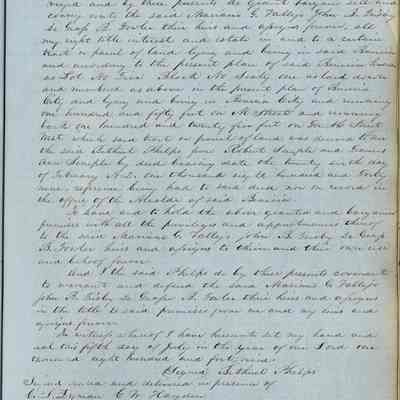 and by these presents do grant bargain sell and
convey unto the said Mariano G. Vallejo John B. Frisby
Le Grafs B. Fowler their heirs and assigns forever, all
my right title interest and estate in and to a certain
tract or parcel of land lying and being in said Benicia
and according to the present plan of said Benicia known
as Lot No Block No Sixty one as laid down
and numbered as above on the present plan of Benicia
City and lying and being in Benicia City and running
one hundred and fifty feet on Street and running
back one hundred and twenty five feet on Street
West which said tract or parcel of land was deeded to
the said Bethuel Phelps from Robert Semple and Frances
Ann Semple by deed bearing date the twenty sixth day
of February A.D. one thousand eight hundred and forty
nine reference being had to said deed now on record in
the office of the Alcalde of said Benicia.
To have and to hold the above granted and bargained
premises with all the privileges and appurtenances thereof
to the said Mariano G. Vallejo John B. Frisby Le Grafs
B. Fowler heirs and assigns to them and their own use
and behoof forever
And I the said Phelps do by these presents covenant
to warrant and defend the said Mariano G. Vallejo
John B. Frisby Le Grafs B. Fowler their heirs and assigns
in the title to said premises from me and my heirs and
assigns forever
In witness whereof I have hereunto set my hand and
seal this fifth day of July in the year of our Lord one
thousand eight hundred and forty nine.
Signed Bethuel Phelps
Signed sealed and delivered in presence of
C. W. Hayden